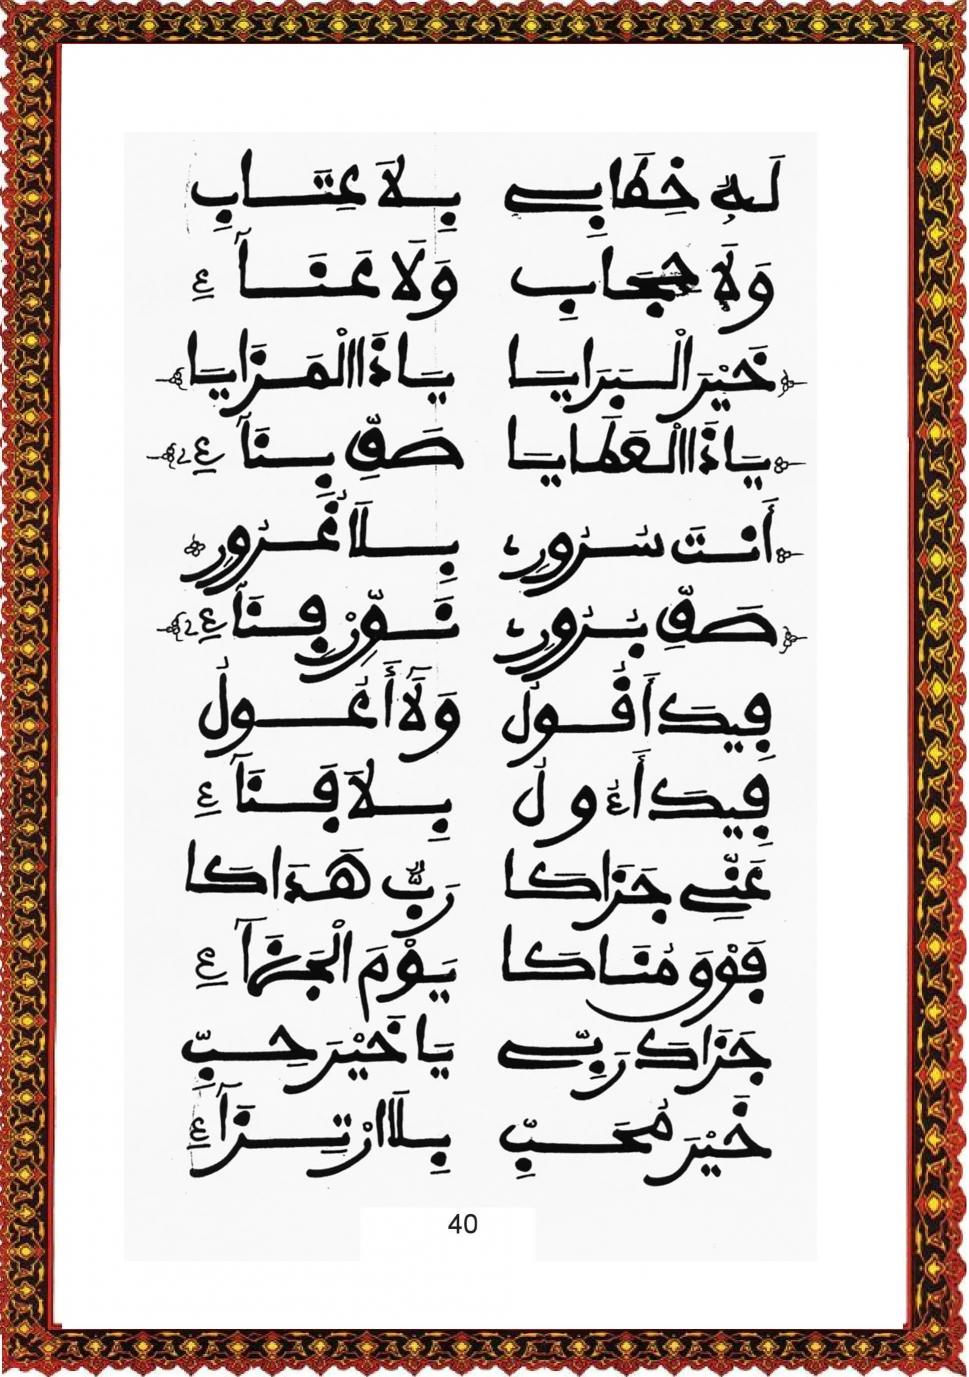 لَهُ خِطَابِي بِلَا عِتَابِ
وَلَا حِجَابِ وَلَا عَنَآءِ
خَيْرَ الْبَرَايَا يَا ذَا الْمَزَايَا
يَا ذَا الْعَطَايَا صَفِّ بِنَآءِ
أَنْتَ سُرُورِ بِلَا غُرُورِ
صَفِّ بُرُورِ نَوِّرْ فِنَآءِ
فِيكَ أَقُولُ وَلَا أَعُولُ
فِيكَ أَءُولُ بِلَا فَنَآءِ
عَنِّي جَزَاكَا رَبٌّ هَدَاكَا
فَوْقَ مُنَاكَا يَوْمَ الْجَزَآءِ
جَزَاكَ رَبِّي يَا خَيْرَ حِبِّ
خَيْرَ مُحِبِّ بِلَا ارْتِزَآءِ
40